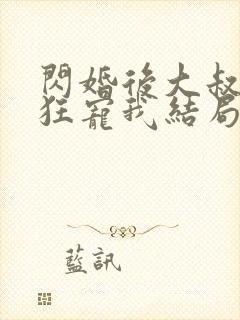 閃婚後大叔
狂寵我結局
藍訊